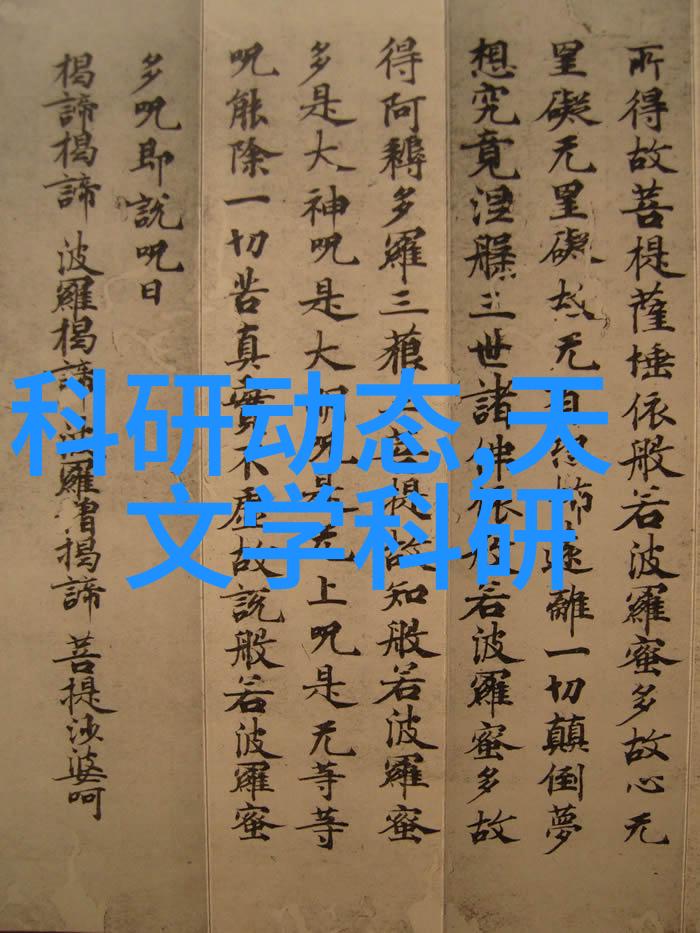 所得故菩提薩埵依般若波羅蜜多故心无
罣礙无罣礙故无有恐怖遠離一切顛倒夢
想究竟涅槃三世諸佛依般若波羅蜜多故
得阿耨多羅三藐三菩提故知般若波羅蜜
多是大神呪是大明呪是无上呪是无等等
呪能除一切苦真實不虛故說般若波羅蜜
多呪即說呪曰
揭諦揭諦 波羅揭諦 波羅僧揭諦 菩提沙婆呵
科研动态,天
文学科研